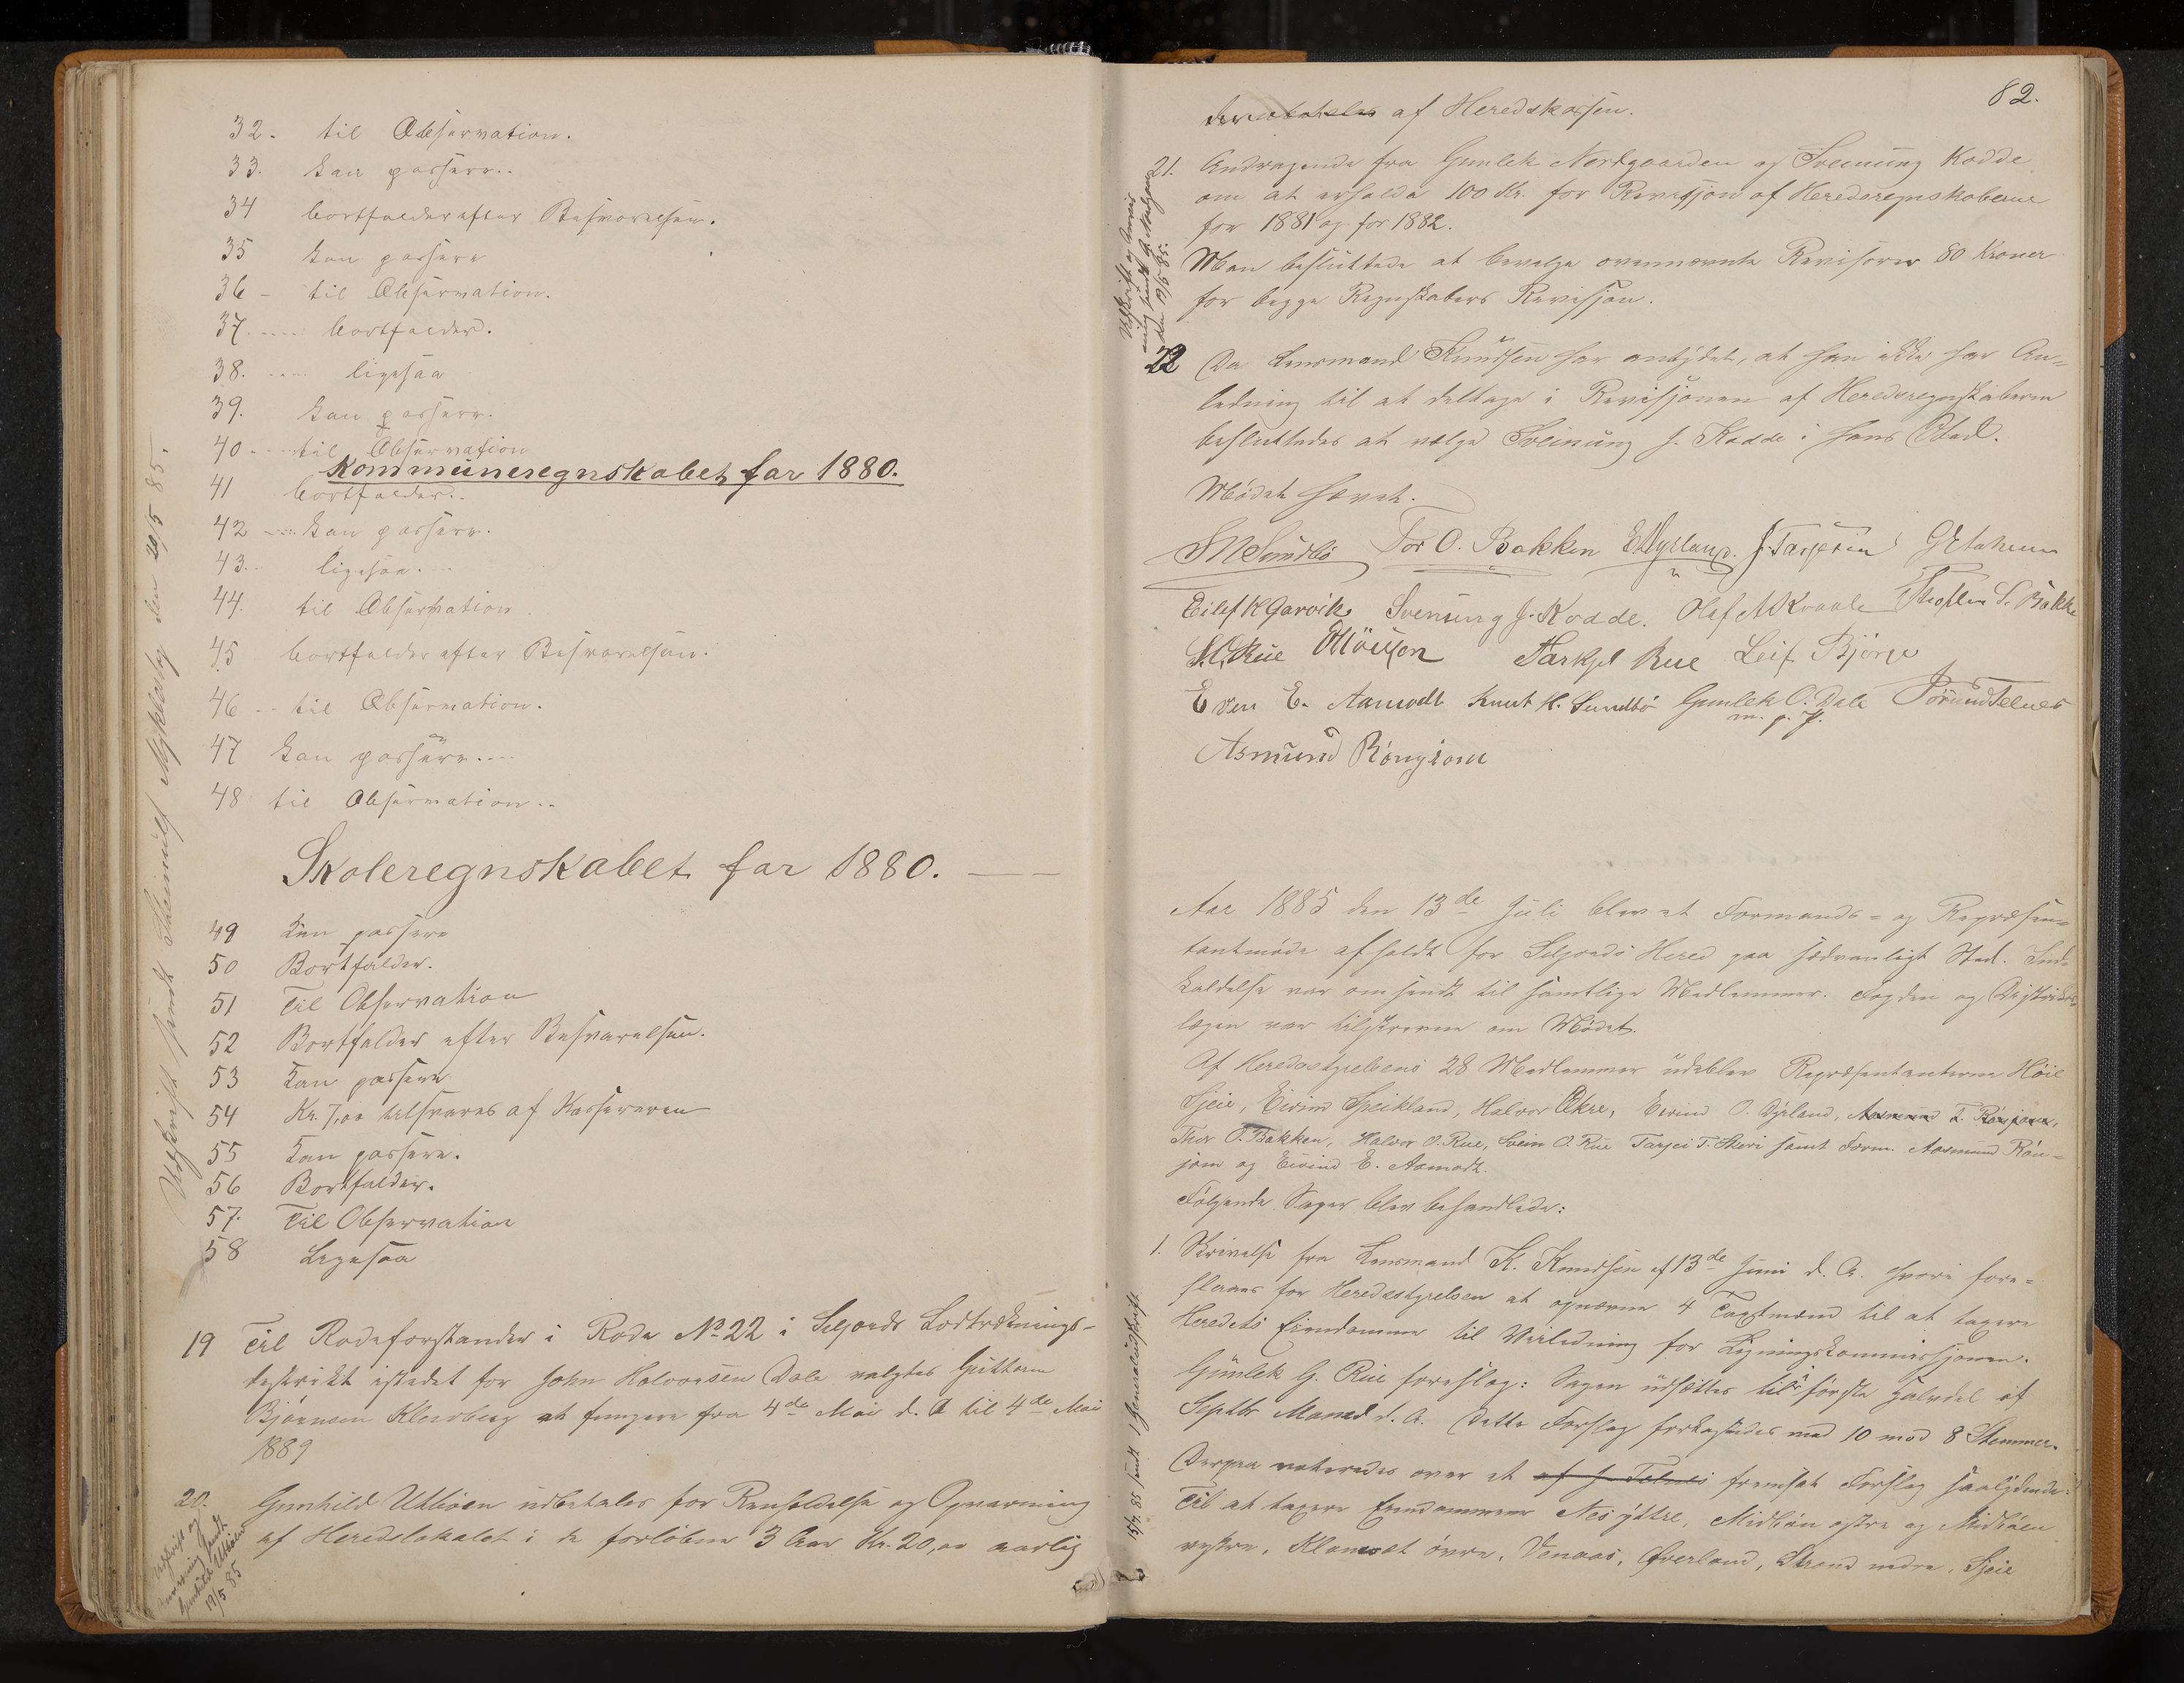 32. til Observation.
33. kan passere..
34 bortfalder efter Besvarelsen.
35 kan passere
36 - til Observation.
37. .... bortfalder.
38. .... ligesaa
39. kan passere.
40 .... til Observation
Kommuneregnskabet for 1880.
41 bortfalder..
42 .... kan passere.
43.. ligesaa. ...
44. til Observation.
45 bortfalder efter Besvarelsen.
46 .. til Observation.
47 kan passere....
48 til Observation..
Skoleregnskabet for 1880.
49 Kan passere
50 Bortfalder.
51 Til Observation
52 Bortfalder efter Besvarelsen.
53 Kan passere
54 Kr. 7,00 tilsvares af Kassereren
55 Kan passere.
56 Bortfalder.
57. Til Observation
58 Ligesaa
19 Til Rodeforstander i Rode No 22 i Seljords Lodtræknings-
destrikt istedet for John Halvorsen Dale valgtes Guttorm
Bjørnsen Kleivberg at fungere fra 4de Mai d. A. til 4de Mai
1889
20. Gunhild Utbøen udbetales for Renholdelse og Opvarming
af Heredslokalet i de forløbne 3 Aar Kr. 20,00 aarlig
Udskrift og
Anvisning sendt
Gunhild Utbøen
19/5 85
Udskrift sendt Steinulf Mykleby den 20/5 85.
82.
der af Heredskassen.
21. Andragende fra Gunlek Nordgaarden og Sveinung Kodde
om at erholde 100 Kr. for Revisjon af Heredsregnskaberne
for 1881 og for 1882.
Man besluttede at bevilge ovennævnte Revisorer 80 Kroner
for begge Regnskabers Revisjon.
Udskrift og Anvis
ning sendt G. Nordgaard
den 19/5 85.
22 Da Lensmand Knudsen har antydet, at han ikke har An=
ledning til at deltage i Revisjonen af Heredsregnskaberne
besluttedes at vælge Sveinung J. Kodde i hans Sted.
Mødet hævet.
S M Sundbø Tor O. Bakken E Nylland. J. Tarjesen G E
Eilef K Garvik Svenung J. Kodde. Olaf A Kvaale Steffen S. Bakke
S. O. Rue Tarkjel Rue Leif Bjørge
Even E. Aamodt Knut H. Sundbø Gunlek O. Dale Jørund Telnes
m. p. P.
Asmund Rönjom
Aar 1885 den 13de Juli blev et Formands= og Repræsen=
tantmøde afholdt for Seljords Hered paa sædvanligt Sted. Ind=
kaldelse var omsendt til samtlige Medlemmer. Fogden og Distrikts
lægen var tilskrevne om Mødet.
Af Heredsstyrelsens 28 Medlemmer udeblev Repræsentanterne Høie
Sjeie, Eivind Speikland, Halvor Ekre, Eivind O. Dyrland, Aasmund T. Rönjom,
Thor O. Bakken, Halvor O. Rue, Svein O. Rue Tarjei T. Skori samt Form. Aasmund Rön=
jom og Eivind E. Aamodt.
Følgende Sager blev behandlede:
1. Skrivelse fra Lensmand K. Knudsen af 13de Juni d. A. hvori fore=
slaaes for Heredsstyrelsen at opnævne 4 Taxtmænd til at taxere
Heredets Eiendomme til Veiledning for Ligningskommissjonen.
Gunlek G. Rue foreslog: Sagen udsættes til første Halvdel af
Septbr Maaned d. A. Dette Forslag forkastedes med 10 mod 8 Stemmer.
Derpaa voteredes over et af J. Telnes fremsat Forslag saalydende:
Til at taxere Eiendommene Nes yttre, Midbøen østre og Midbøen
vestre, Klomset øvre, Venaas, Øverland, Strand nedre, Sjeie
15/7 85 sendt 1 Generaludskrift